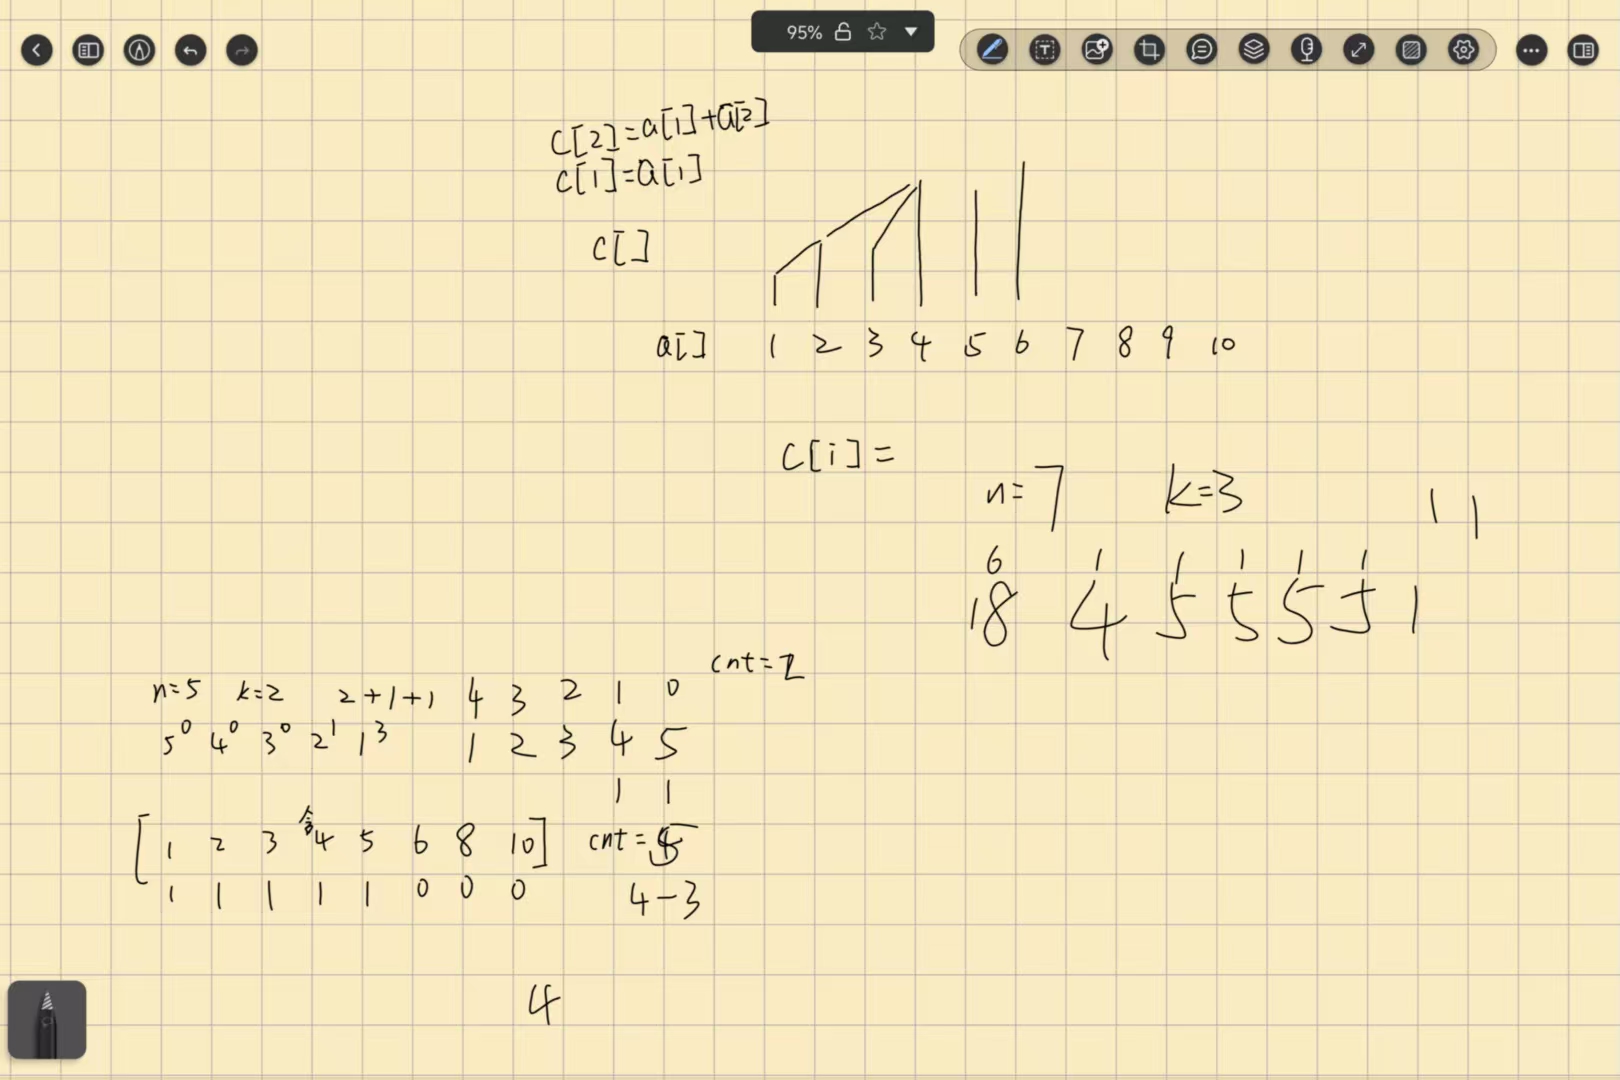 95%
C[2]=a[1]+a[2]
C[1]=a[1]
C[]
a[] 1 2 3 4 5 6 7 8 9 10
C[i]=
n=7 k=3 1 1
6 1 1 1 1 1
18 4 5 5 5 5 1
cnt=
n=5 k=2 2+1+1 4 3 2 1 0
5⁰ 4⁰ 3⁰ 2¹ 1³ 1 2 3 4 5
1 1
[1 2 3 4 5 6 8 10] cnt=
1 1 1 1 1 0 0 0 4-3
4